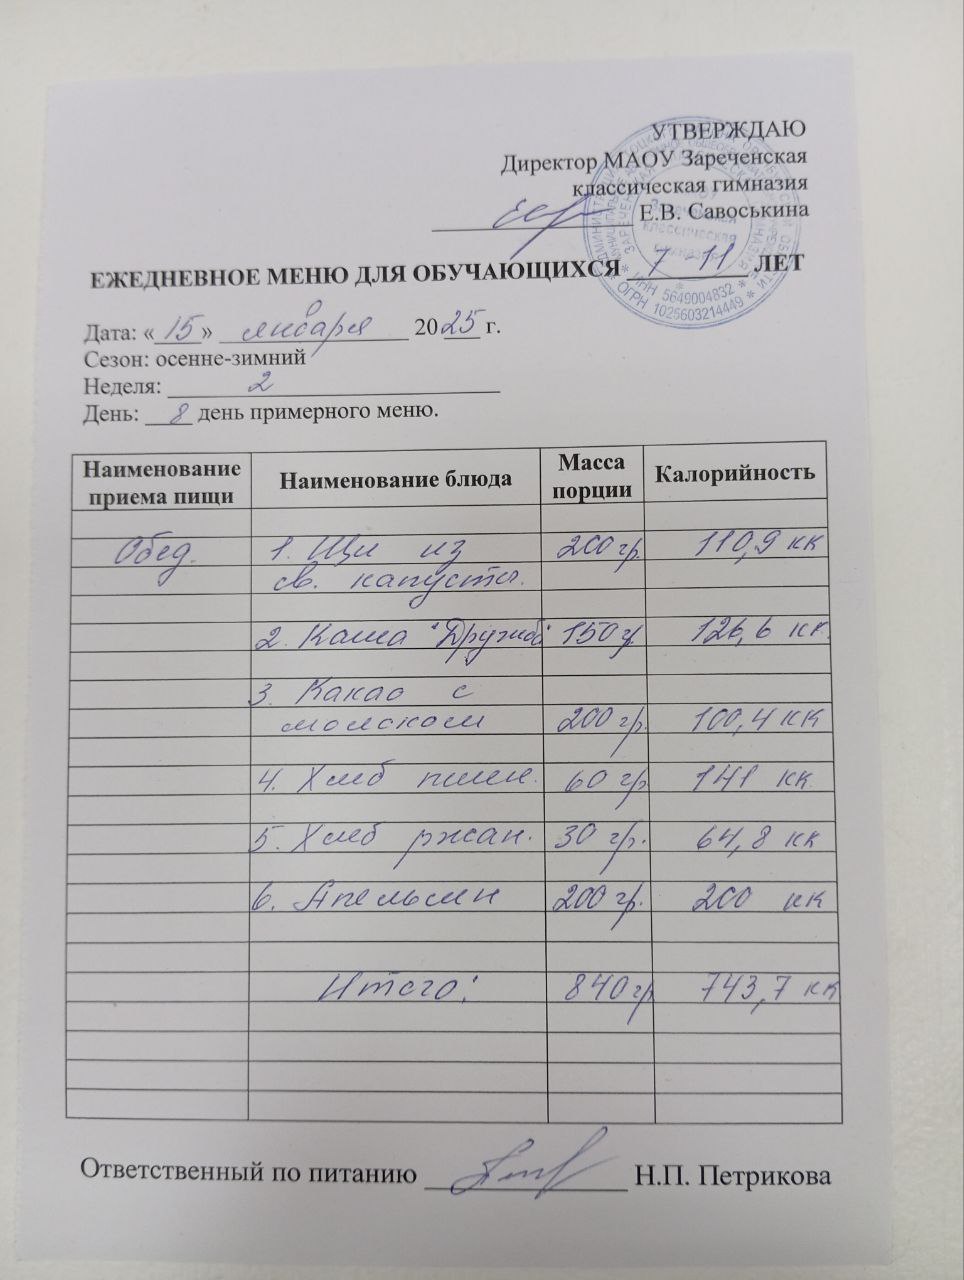 УТВЕРЖДАЮ
Директор МАОУ Зареченская
классическая гимназия
Е.В. Савоськина
ЕЖЕДНЕВНОЕ МЕНЮ ДЛЯ ОБУЧАЮЩИХСЯ 7-11 ЛЕТ
Дата: «15» января 2025 г.
Сезон: осенне-зимний
Неделя: 2
День: 8 день примерного меню.
Наименование приема пищи Наименование блюда Масса порции Калорийность
Обед. 1. Щи из 200 гр. 110,9 кк
св. капусты.
2. Каша "Дружба" 150 гр. 126,6 кк.
3. Какао с
молоком 200 гр. 100,4 кк
4. Хлеб пшен. 60 гр 141 кк.
5. Хлеб ржан. 30 гр. 64,8 кк
6. Апельсин 200 гр. 200 кк
Итого: 840 гр 743,7 кк
Ответственный по питанию Н.П. Петрикова
ИНН 5649004832
ОГРН 1025603214449